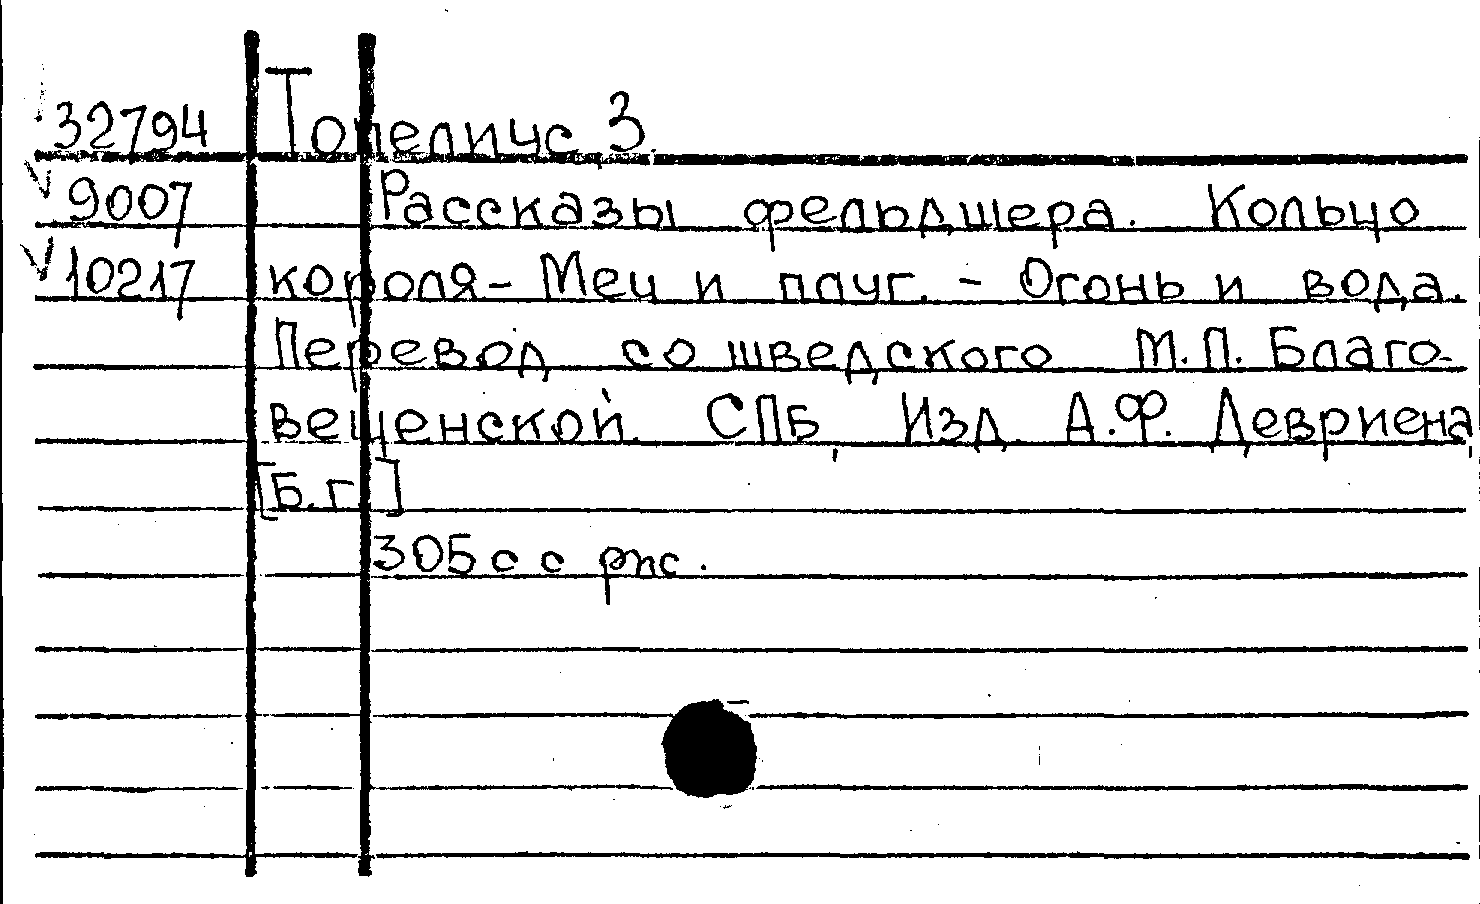 32794 Топелиус З.
V 9007 Рассказы фельдшера. Кольцо
V 10217 короля - Меч и плуг. - Огонь и вода.
Перевод со шведского М.П. Благо-
вещенской. СПБ, Изд. А.Ф. Девриена,
[Б.г.]
305 с с рис.